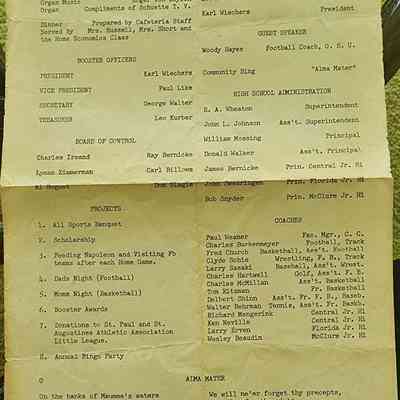 Organ Music
Organ Compliments of Schuette T. V.
Dinner Prepared by Cafeteria Staff
Served by Mrs. Russell, Mrs. Short and
the Home Economics Class
BOOSTER OFFICERS
PRESIDENT Karl Wiechers
VICE PRESIDENT Paul Like
SECRETARY George Walter
TREASURER Leo Kurber
BOARD OF CONTROL
Charles Freund Ray Bernicke
Lyman Zimmerman Carl Billows
Al August Don Slagle
PROJECTS
1. All Sports Banquet
2. Scholarship
3. Feeding Napoleon and Visiting Fb
teams after each Home Game.
4. Dads Night (Football)
5. Moms Night (Basketball)
6. Booster Awards
7. Donations to St. Paul and St.
Augustines Athletic Association
Little League.
8. Annual Bingo Party
Karl Wiechers President
GUEST SPEAKER
Woody Hayes Football Coach, O. S. U.
Community Sing "Alma Mater"
HIGH SCHOOL AIMINISTRATION
H. A. Wheaton Superintendent
John L. Johnson Ass't. Superintendent
William Mossing Principal
Donald Walser Ass't. Principal
James Bernicke Prin. Central Jr. Hi
John Swearingen Prin. Florida Jr. Hi
Bob Snyder Prin. McClure Jr. Hi
COACHES
Paul Wesner Fac. Mgr., C. C.
Charles Buckenmeyer Football, Track
Fred Church Basketball, Ass't. Football
Clyde Schie Wrestling, F. B., Track
Larry Sasaki Baseball, Ass't. Wrest.
Charles Hartwell Golf, Ass't. F. B.
Charles McMillan Ass't. Basketball
Tom Kitzman Fr. Basketball
Delbert Shinn Ass't. Fr. F. B., Baseb.
Walter Behrman Tennis, Ass't. Fr. Baskb.
Richard Mengerink Central Jr. Hi
Ken Neville Central Jr. Hi
Larry Erven Florida Jr. Hi
Wesley Beaudin McClure Jr. Hi
ALMA MATER
On the banks of Maumee's waters
We will ne'er forget thy precepts,